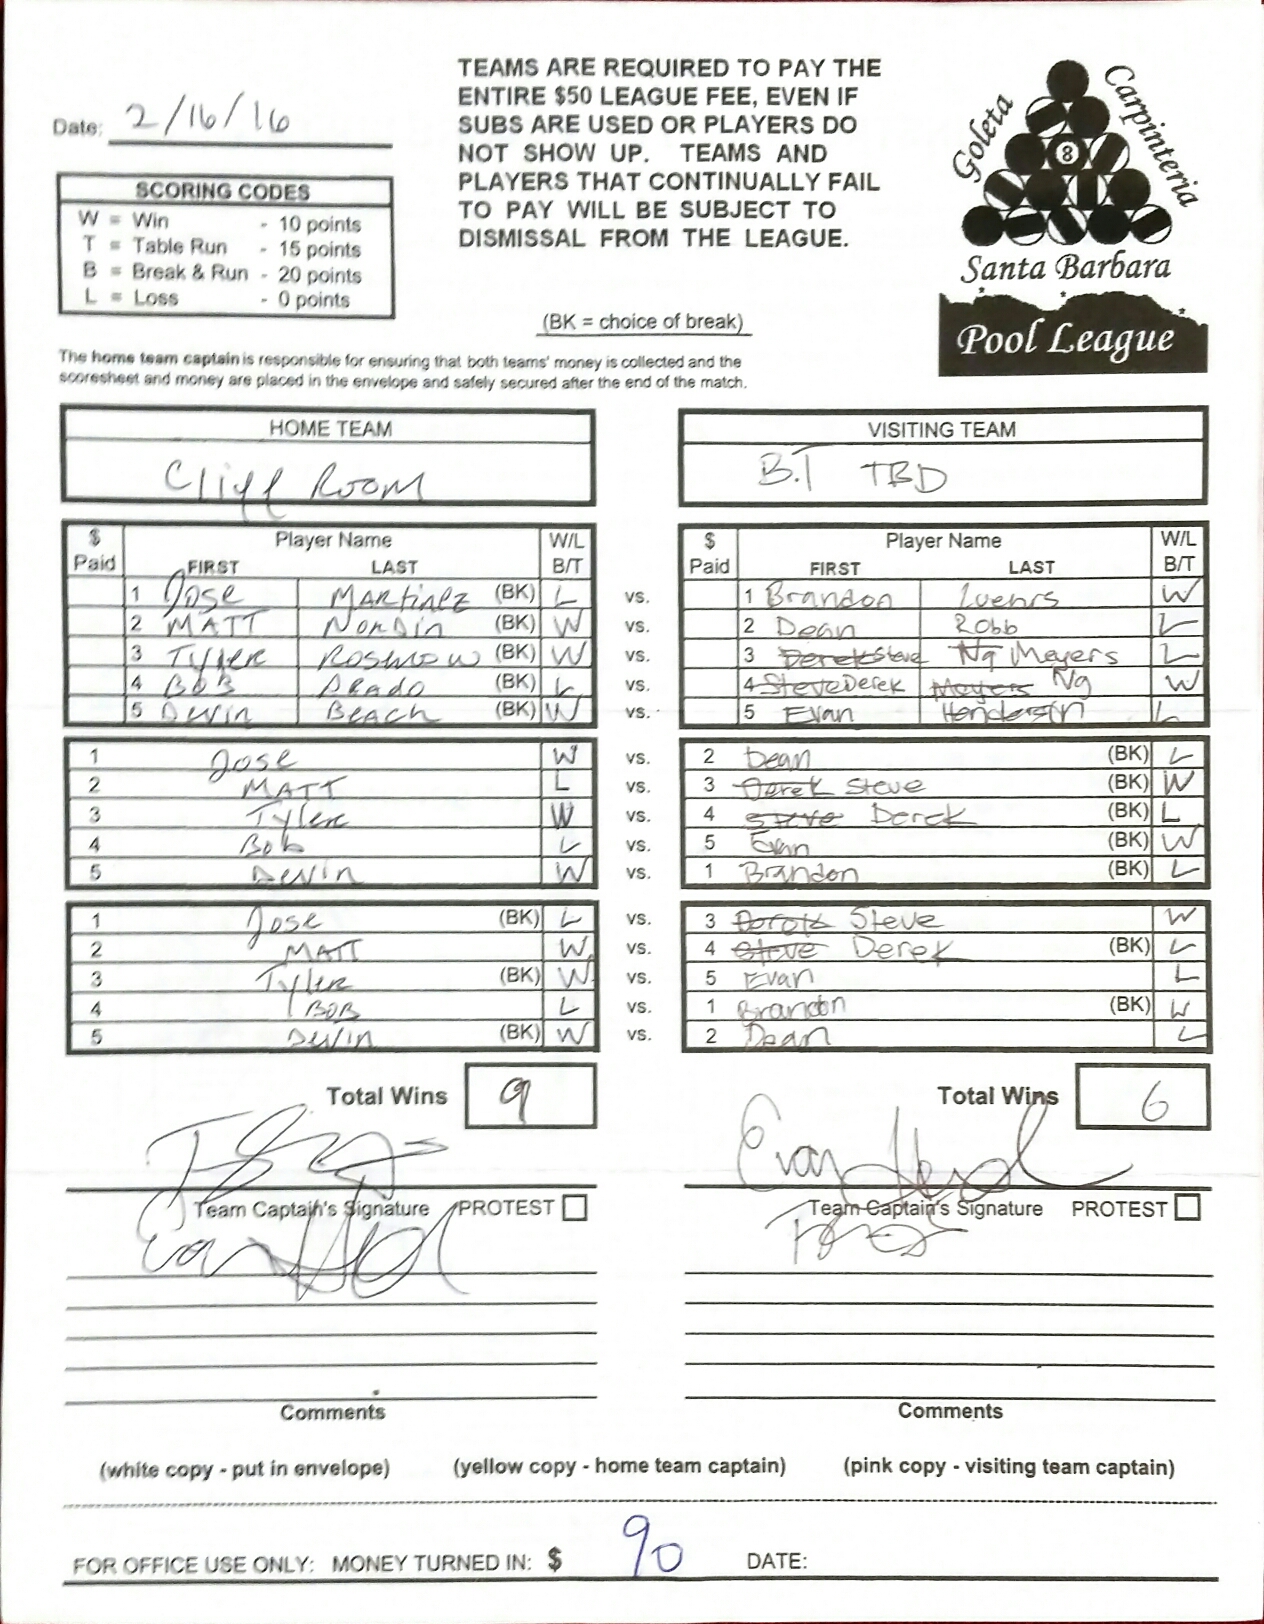 Date: 2/16/16
TEAMS ARE REQUIRED TO PAY THE
ENTIRE $50 LEAGUE FEE, EVEN IF
SUBS ARE USED OR PLAYERS DO
NOT SHOW UP. TEAMS AND
PLAYERS THAT CONTINUALLY FAIL
TO PAY WILL BE SUBJECT TO
DISMISSAL FROM THE LEAGUE.
Goleta
Carpinteria
8
Santa Barbara
Pool League
SCORING CODES
W = Win - 10 points
T = Table Run - 15 points
B = Break & Run - 20 points
L = Loss - 0 points
(BK = choice of break)
The home team captain is responsible for ensuring that both teams' money is collected and the
scoresheet and money are placed in the envelope and safely secured after the end of the match.
HOME TEAM VISITING TEAM
Cliff Room B.T TBD
$ Player Name W/L $ Player Name W/L
Paid FIRST LAST B/T Paid FIRST LAST B/T
1 Jose Martinez (BK) L vs. 1 Brandon W
2 MATT Nordin (BK) W vs. 2 Dean Robb L
3 Tyler (BK) W vs. 3 Derek Steve Ng Meyers L
4 BOB Prado (BK) L vs. 4 Steve Derek Meyers Ng W
5 Devin Beach (BK) W vs. 5 Evan Henderson L
1 Jose W vs. 2 Dean (BK) L
2 MATT L vs. 3 Derek Steve (BK) W
3 Tyler W vs. 4 Steve Derek (BK) L
4 Bob L vs. 5 Evan (BK) W
5 Devin W vs. 1 Brandon (BK) L
1 Jose (BK) L vs. 3 Derek Steve W
2 MATT W vs. 4 Steve Derek (BK) L
3 Tyler (BK) W vs. 5 Evan L
4 BOB L vs. 1 Brandon (BK) W
5 Devin (BK) W vs. 2 Dean L
Total Wins 9 Total Wins 6
Team Captain's Signature PROTEST Team Captain's Signature PROTEST
Comments Comments
(white copy - put in envelope) (yellow copy - home team captain) (pink copy - visiting team captain)
FOR OFFICE USE ONLY: MONEY TURNED IN: $ 90 DATE: